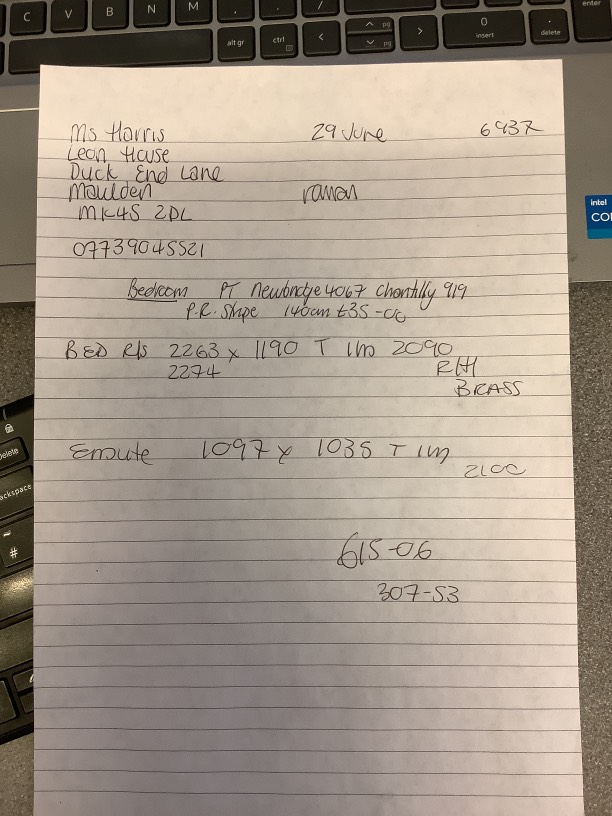 Ms Harris 29 June 6937
Leon House
Duck End Lane
Maulden roman
MK45 2DL
07739045521
Bedroom PT Newbridge 4067 Chantilly 919
P.R. Stripe 140cm £35-00
BED R/S 2263 x 1190 T 1m 2090
2274 RHH
BRASS
Ensuite 1097 x 1035 T 1m
2100
615-06
307-53
C V B N M
alt gr ctrl < pg pg > 0 insert . delete
enter
intel
CO
delete
ackspace
~
#